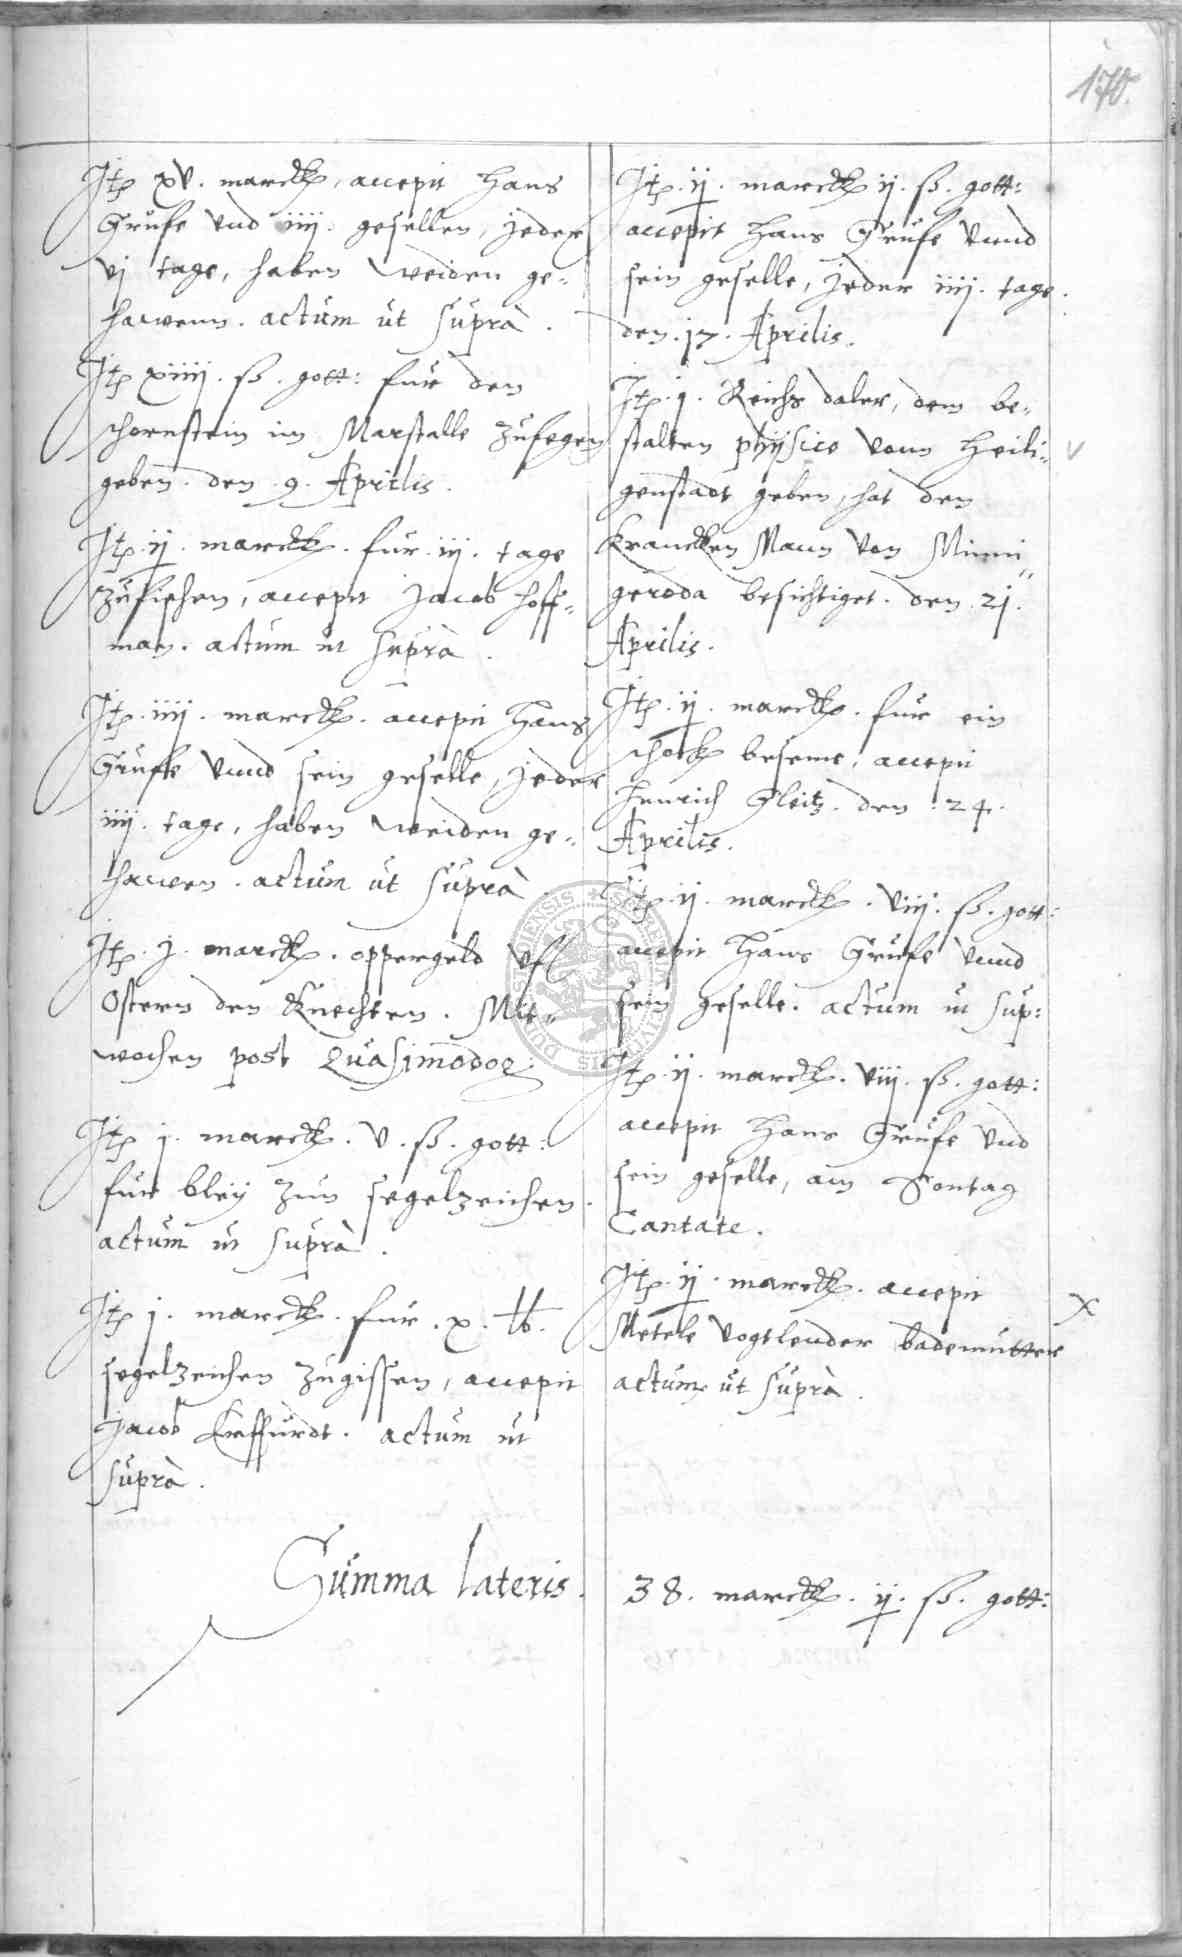 170.
Jtem xv. marck, accepit Hans
Grufe vnd iiij. gesellen, jeder
vj tage, haben weiden ge„
hawenn. actum ut suprà.
Jtem xiiij. ß. gott: fur den
schornstein im Marstalle zufegen
geben. den 9. Aprilis.
Jtem. ij. marck. fur. iij. tage
zufischen, accepit Jacob Hoff„
man. actum ut suprà.
Jtem. iiij. marck. accepit Hans
Grufe vnnd sein geselle, jeder
iiij. tage, haben weiden ge„
hawen. actum ut suprà
Jtem. j. marck. oppergeld vff
Ostern den Knechten. Mit„
wochen post Quasimodog:
Jtem j. marck. v. ß. gott:
fur bley zun segelzeichen.
actum ut suprà.
Jtem j. marck. fur. x. lb.
segelzeichen zugissen, accepit
Jacob Erffurdt. actum ut
suprà.
Jtem. ij. marck ij. ß. gott:
accepit Hans Grufe vnnd
sein geselle, jeder iiij. tage.
den. 17. Aprilis.
Jtem. j. Reichs daler, dem be„
stalten physico vonn Heili„
genstadt geben, hat den
Krancken Mann von Minni„
geroda besichtiget. den. 21.
Aprilis.
Jtem. ij. marck. fur ein
schock beseme, accepit
Henrich Gleitz. den. 24.
Aprilis.
Jtem. ij. marck. viij. ß. gott:
accepit Hans Grufe vnnd
sein geselle. actum ut sup:
Jtem. ij. marck. viij. ß. gott:
accepit Hans Grufe vnd
sein geselle, am Sontag
Cantate.
Jtem. ij. marck. accepit
Metele Vogtlender bademutter
actum ut suprà.
Summa lateris. 38. marck. ij. ß. gott: